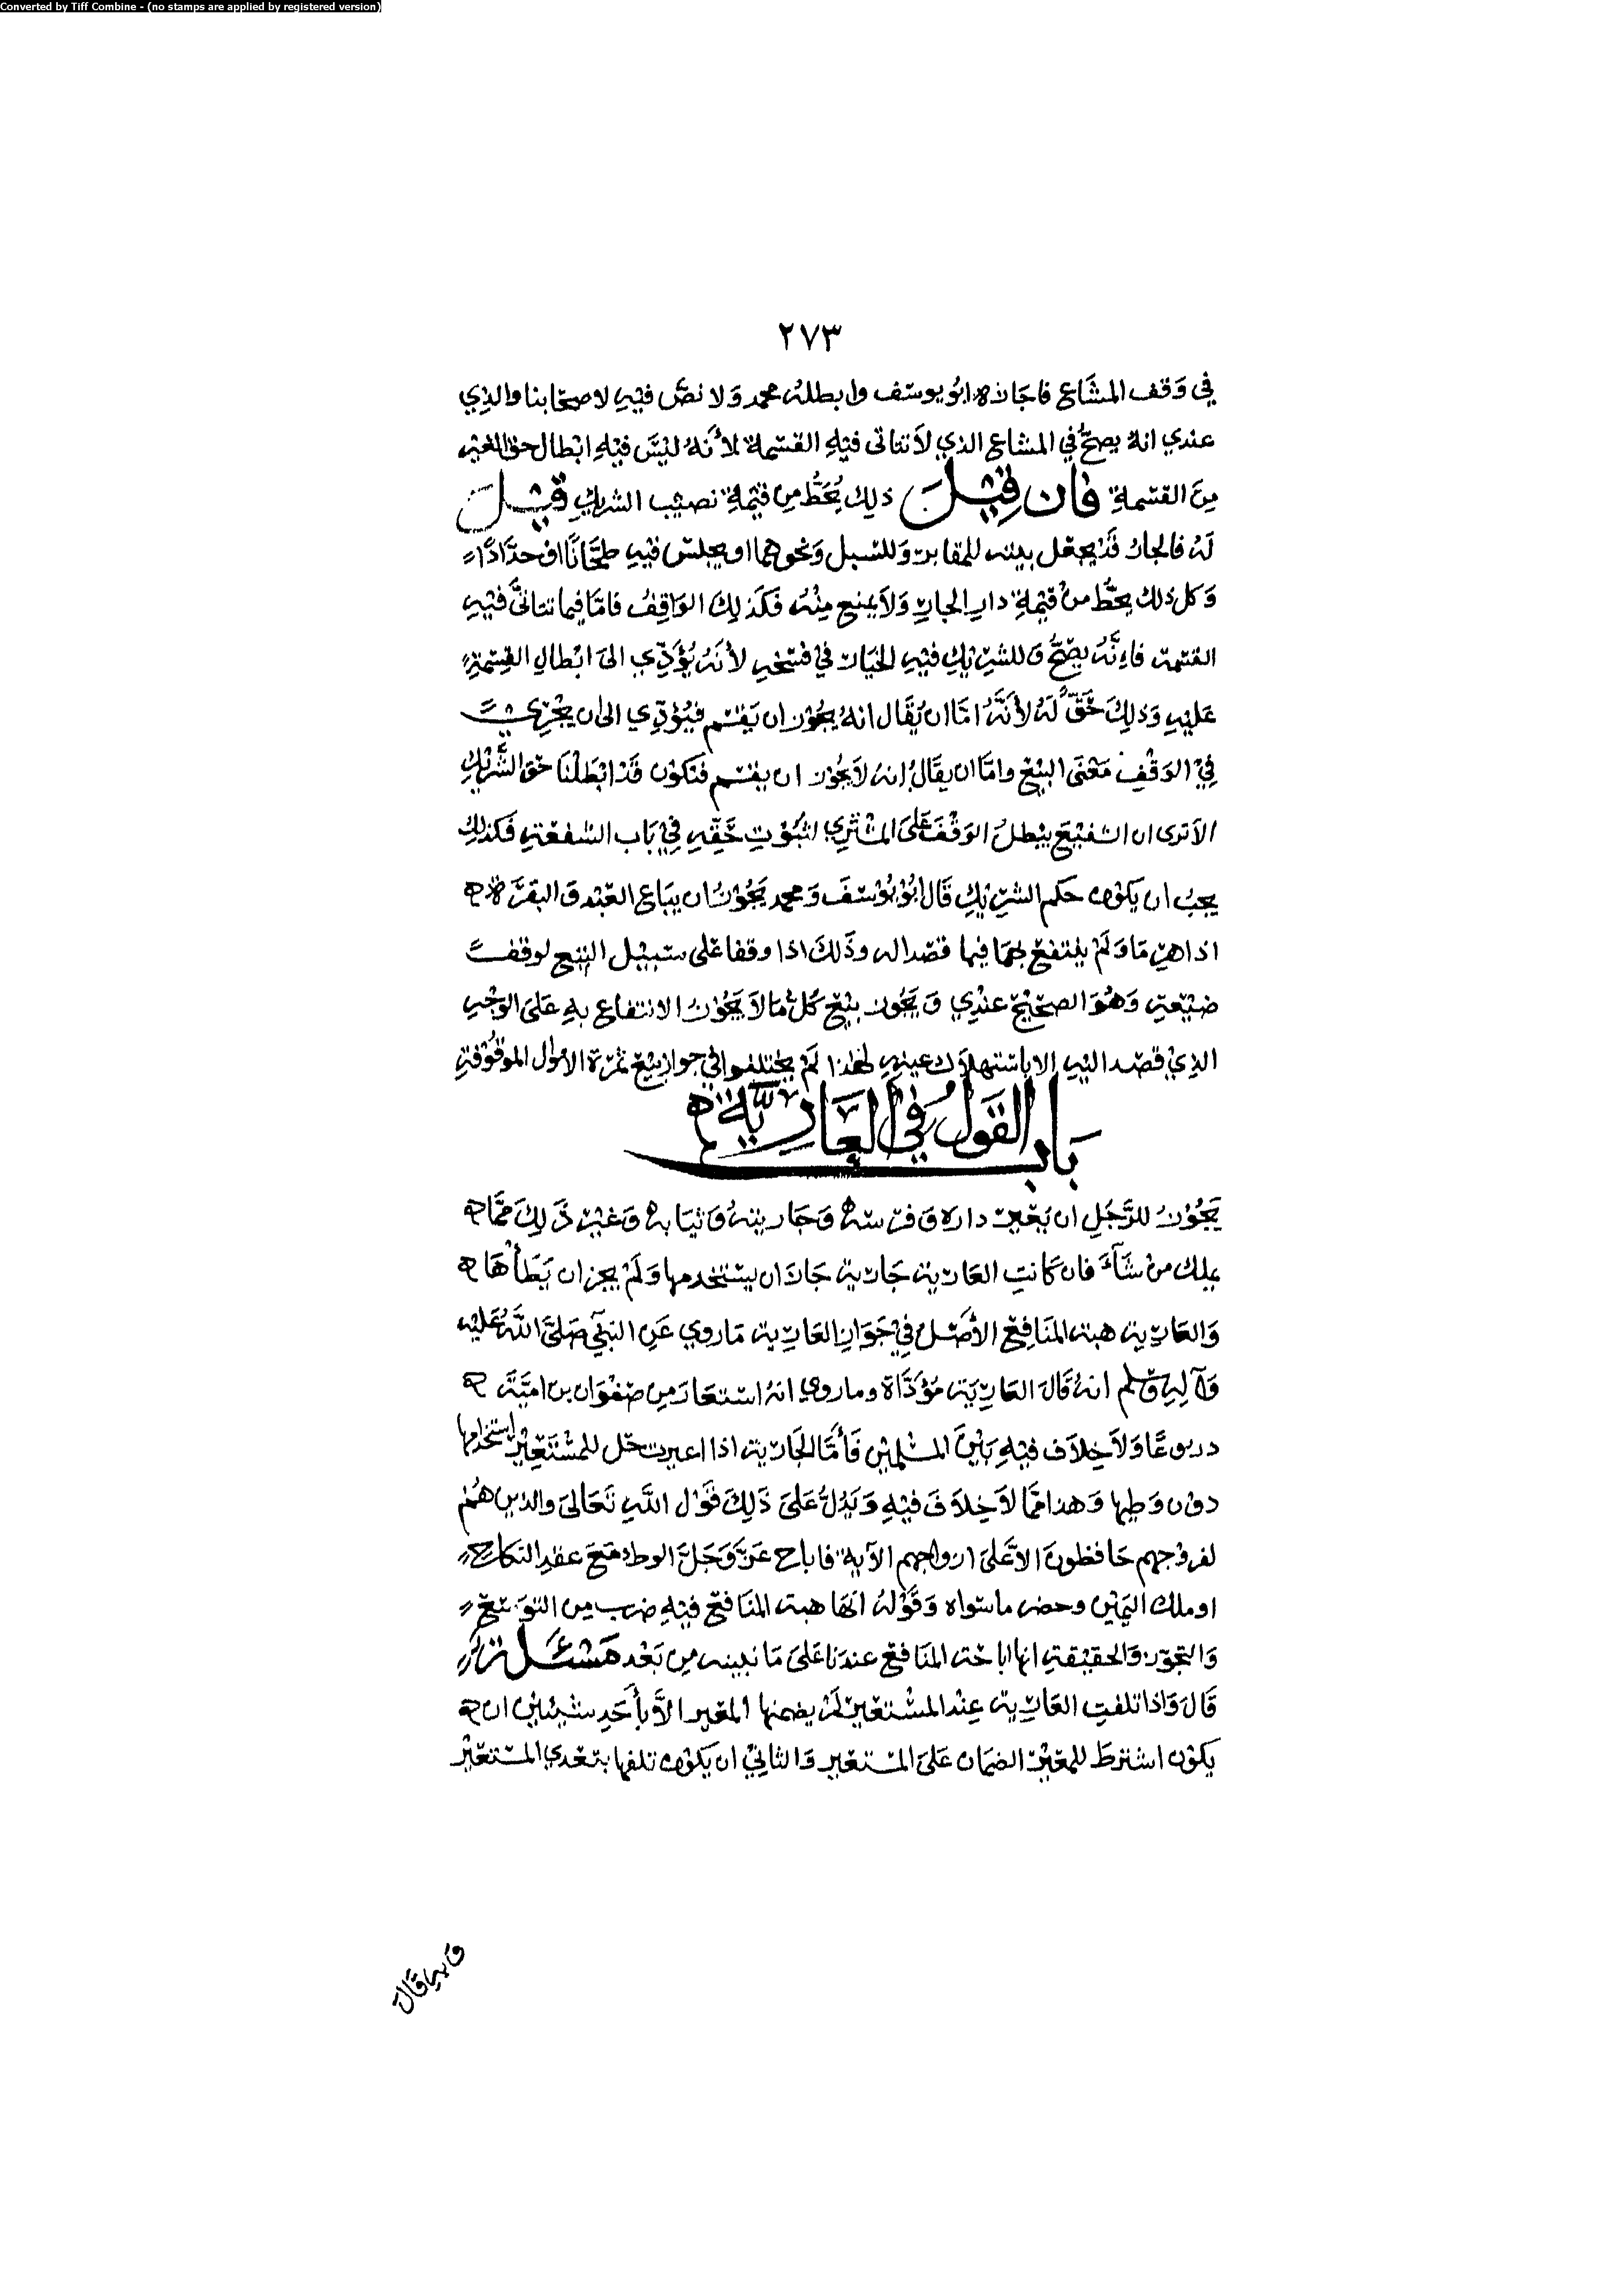 Converted by Tiff Combine - (no stamps are applied by registered version)
٢٧٣
في وَقف المشَاع فاجَازه ابو يوسَف وابطله محمد وَلا نصَّ فيهِ لاصحابنا والذِي
عندي انهُ يصحُّ في المشاع الذي لاَ تتاتى فيهِ القسمة لأنهُ ليسَ فيهِ ابطال حق الغير
مِنَ القسمةِ فان قِيْلَ ذلِك يُحَطُّ مِن قيمةِ نصيب الشريكِ قيْلَ
لَهُ فالجارُ قدْ يجعَل بيته للمقابر وَللسبل وَنحوهما او يجلس فيهِ طحَّانًا او حدَّادًا
وَكل ذلك يحطُّ مِنْ قيْمةِ دارِ الجارِ وَلاَ يمنع مِنْهُ فكَذلِكَ الوَاقِفُ فامَّا فيما تتاتَّى فيْهِ
القسمة فاِنَّهُ يصِحُّ وَللشرِيْكِ فيْهِ الخيَار فيْ فسْخهِ لأنهُ يُؤدِّي الىَ ابْطالِ القِسْمةِ
عَليْهِ وَذلِكَ حَقٌّ لَهُ لأنَّهُ امَّا ان يُقَال انهُ يجُوْز ان يَقسم فيُؤدِّي الى ان يجْرِيَ
فِيْ الوَقْفِ مَعْنَى البَيْعِ وامَّا ان يقَالُ اِنهُ لاَ يجُوْز ان يقسم فنكوْن قَدْ ابْطَلْنَا حَق الشَّرِيْكِ
الاَ ترى ان الشفيْعَ يبْطلُ الوَقْفَ عَلىَ المشترِي لثبُوْتِ حَقِّهِ فِيْ بَاب الشفعَةِ فكَذلِك
يجبُ ان يكوْن حكم الشرِيْكِ قَالَ ابُوْ يُوْسَفَ وَمحمد يَجُوْزُ ان يبَاع العَبْد وَالبَقرَة
اذا هرِمَا وَلَمْ ينتفعْ بهمَا فيما قصدا له وذَلكَ اذا وقفا عَلى سَبيْل التبع لوقف
ضيْعَةٍ وَهُوَ الصحِيْح عنْدِي وَيجُوز بيْع كُلِّ مَا لاَ يَجُوْزُ الانتفاع بهِ عَلىَ الوَجْهِ
الذِيْ قصد اليْهِ الا باسْتهلاَك عينِهِ لهذا لَمْ يختلفوا في جواز بيْع ثمْرَة الاموَال الموقُوْفةِ
بَابُ القَوْلُ فِي العَارِيَّةِ
يَجُوْزُ للرَّجُلِ ان يُعيْرَ داره وَفرَسهُ وَجَاريتهُ وَثيَابهُ وَغيْر ذَلِكَ ممَّا
يملك منْ شَآءَ فان كَانتِ العَارية جَارية جَازَ ان يستخدمها وَلَمْ يجز ان يَطَأهَا
وَالعَارِية هبة المنَافِع الأصْل فِيْ جَوَازِ العَارِية مَا روِي عَنِ النبيِّ صَلىَّ اللَّهُ عَليْهِ
وَآلِهِ وَسَلم انهُ قَالَ العَارِيَة مُؤدَّاة وما رويَ انهُ استعَارَ مِن صفْوَان بن اميَّة
دروعًا وَلاَ خِلاَف فيْهِ بَيْنَ المسْلمِيْن فَأمَّا الجَارِية اذا اعيرت حَل للمسْتَعِيْرِ استخدامها
دوْن وَطيها وَهذا ممَّا لاَ خِلاَفَ فيْهِ وَيَدُلُّ عَلىَ ذَلِكَ قَوْل اللَّهِ تَعَالىَ والذين هُمْ
لفروْجهم حَافظونَ الاَّ عَلىَ ازواجهم الآية فاباح عَزَّ وَجَلَّ الوطء مَعَ عقدِ النكاح
او ملك اليَمِيْن وحضر ماسوَاه وَقَوْلهُ انهَا هبة المنَافع فيْهِ ضرب مِن التوَسّع
وَالتجَوّز وَالحقيقةِ انها اباحَة المنَافع عندنَا عَلىَ مَا نبينه مِن بَعْد مَسْئَلة
قَالَ وَاذا تلفتِ العَارِية عِنْد المسْتعِيْر لَم يضمنها المعير الاَّ بأَحَدِ شيئينِ ان
يكوْن اشترطَ للمعيْرُ الضمَان عَلىَ المستعيرِ وَالثانيْ ان يكوْن تلفها بتعدي المستعِيْر